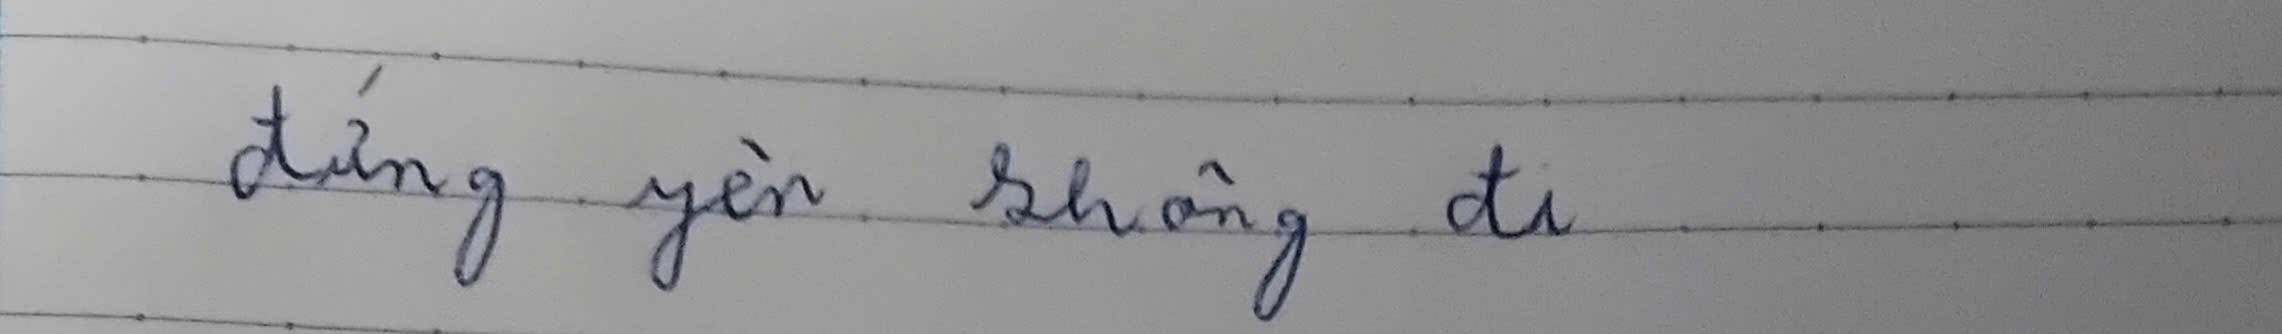 đứng yên không đi